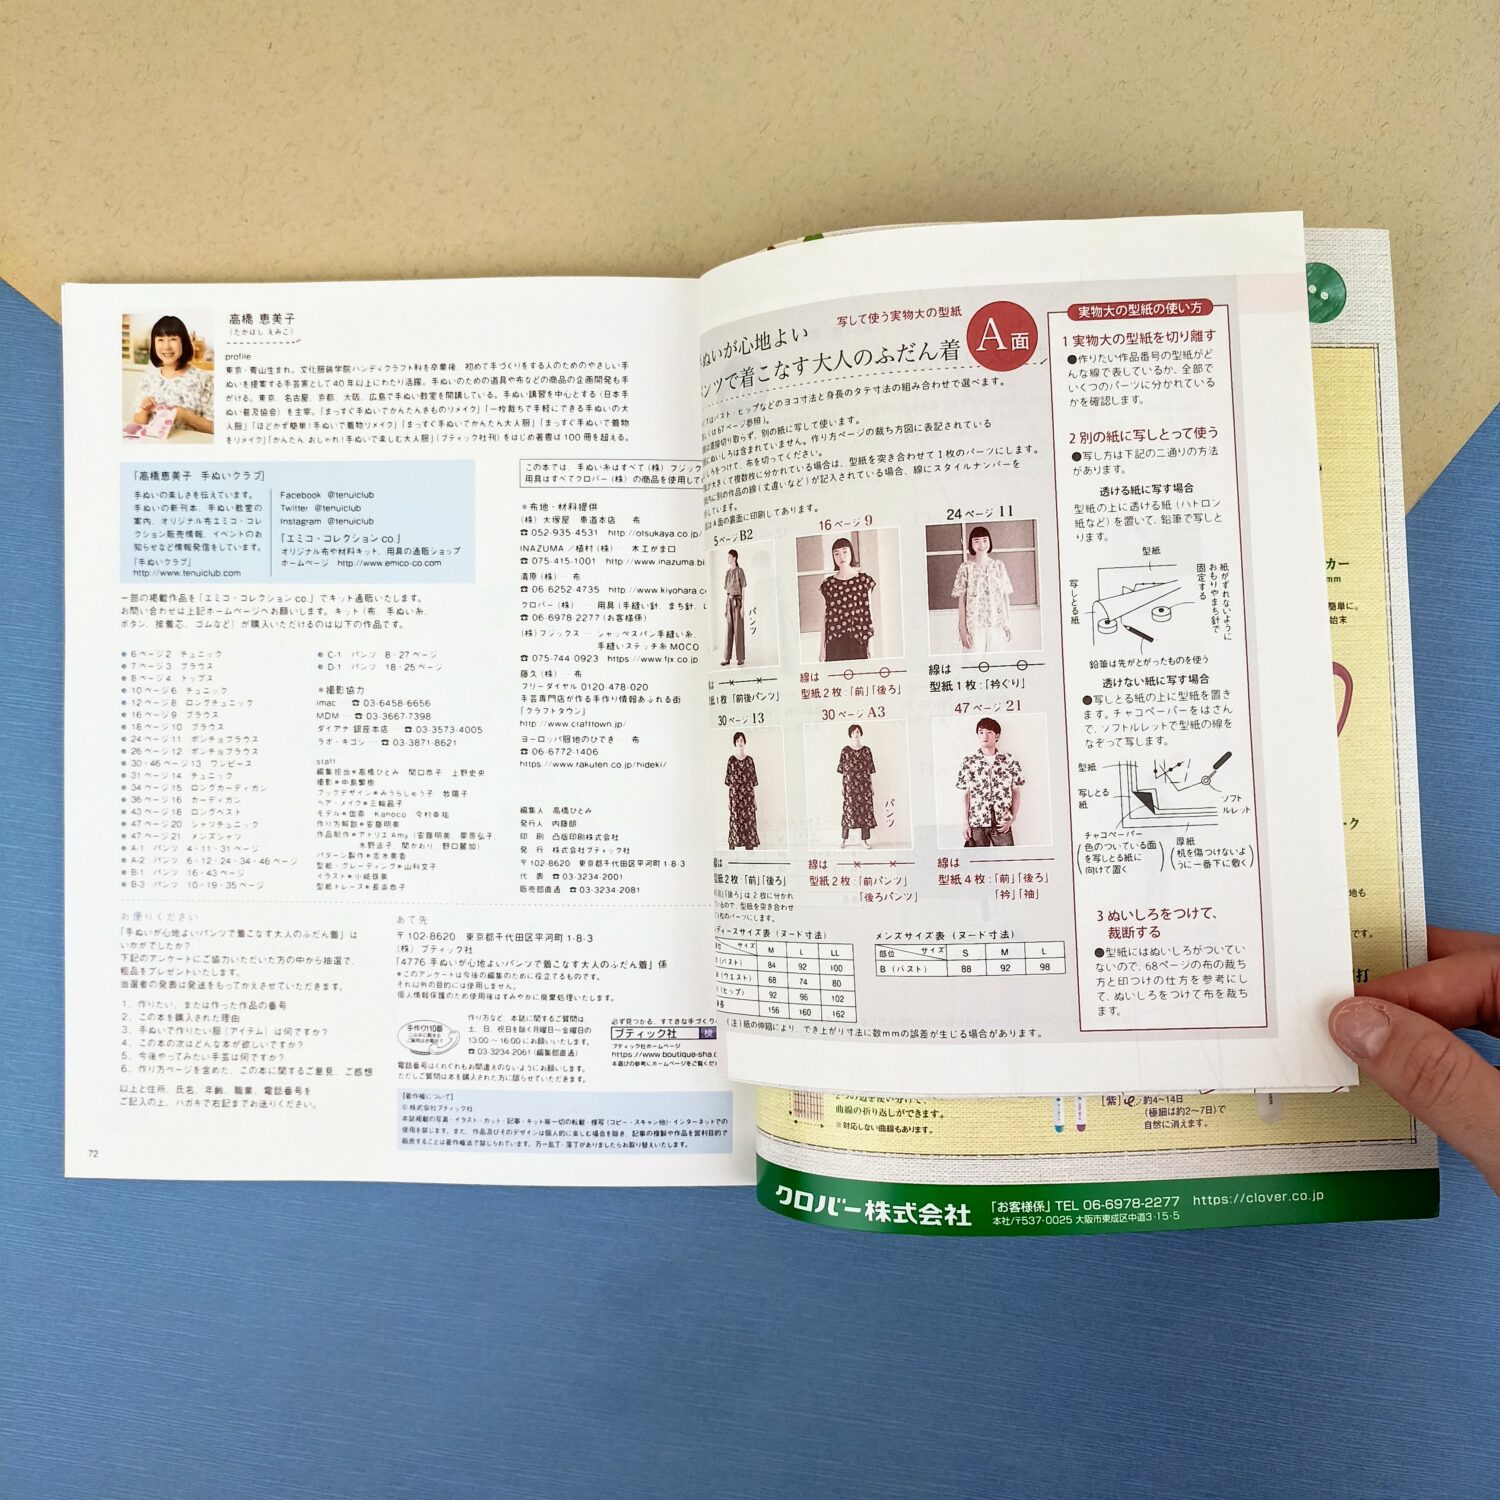 高橋 恵美子
(たかはし えみこ)
profile
東京・青山生まれ。文化服装学院ハンディクラフト科を卒業後、初めて手づくりをする人のためのやさしい手
ぬいを提案する手芸家として40年以上にわたり活躍。手ぬいのための道具や布などの商品の企画開発も手
がける。東京、名古屋、京都、大阪、広島で手ぬい教室を開講している。手ぬい講習を中心とする(日本手
ぬい普及協会)を主宰。「まっすぐ手ぬいでかんたんきものリメイク」「一枚裁ちで手軽にできる手ぬいの大
人服」「ほどかず簡単!手ぬいで着物リメイク」「まっすぐ手ぬいでかんたん大人服」「まっすぐ手ぬいで着物
をリメイク」「かんたん おしゃれ!手ぬいで楽しむ大人服」(ブティック社刊)をはじめ著書は100冊を超える。
「高橋恵美子 手ぬいクラブ」
手ぬいの楽しさを伝えています。
手ぬいの新刊本、手ぬい教室の
案内、オリジナル布エミコ・コレ
クション販売情報、イベントのお
知らせなど情報発信をしています。
「手ぬいクラブ」
http://www.tenuiclub.com
Facebook @tenuiclub
Twitter @tenuiclub
Instagram @tenuiclub
「エミコ・コレクション co.」
オリジナル布や材料キット、用具の通販ショップ
ホームページ http://www.emico-co.com
一部の掲載作品を「エミコ・コレクション co.」でキット通販いたします。
お問い合わせは上記ホームページへお願いします。キット(布、手ぬい糸、
ボタン、接着芯、ゴムなど)が購入いただけるのは以下の作品です。
●6ページ2 チュニック
●7ページ3 ブラウス
●8ページ4 トップス
●10ページ6 チュニック
●12ページ8 ロングチュニック
●16ページ9 ブラウス
●18ページ10 ブラウス
●24ページ11 ポンチョブラウス
●26ページ12 ポンチョブラウス
●30・46ページ13 ワンピース
●31ページ14 チュニック
●34ページ15 ロングカーディガン
●36ページ16 カーディガン
●43ページ18 ロングベスト
●47ページ20 シャツチュニック
●47ページ21 メンズシャツ
●A-1 パンツ 4・11・31ページ
●A-2 パンツ 6・12・24・34・46ページ
●B-1 パンツ 16・43ページ
●B-3 パンツ 10・19・35ページ
●C-1 パンツ 8・27ページ
●D-1 パンツ 18・25ページ
＊撮影協力
imac ☎03-6458-6656
MDM ☎03-3667-7398
ダイアナ 銀座本店 ☎03-3573-4005
ラボ・キゴシ ☎03-3871-8621
staff
編集担当＊高橋ひとみ 関口恭子 上野史央
撮影＊中島繁樹
ブックデザイン＊みうらしゅう子 牧陽子
ヘア・メイク＊三輪昌子
モデル＊伽奈 Kanoco 今村幸祐
作り方解説＊安藤明美
作品制作＊アトリエAmy(安藤明美 栗原弘子
水野法子、関かおり、野口麗加)
パターン製作＊志木美香
型紙・グレーディング＊山科文子
イラスト＊小崎珠美
型紙トレース＊長浜恭子
この本では、手ぬい糸はすべて(株)フジック
用具はすべてクロバー(株)の商品を使用して
＊布地・材料提供
(株)大塚屋 車道本店…布
☎052-935-4531 http://otsukaya.co.jp/
INAZUMA／植村(株)…木工がま口
☎075-415-1001 http://www.inazuma.bi
清原(株)…布
☎06-6252-4735 http://www.kiyohara.c
クロバー(株)…用具(手縫い針、まち針、し
☎06-6978-2277(お客様係)
(株)フジックス…シャッペスパン手縫い糸、
手縫いステッチ糸MOCO
☎075-744-0923 https://www.fjx.co.jp
藤久(株)…布
フリーダイヤル 0120-478-020
手芸専門店が作る手作り情報あふれる街
「クラフトタウン」
http://www.crafttown.jp/
ヨーロッパ服地のひでき…布
☎06-6772-1406
https://www.rakuten.co.jp/hideki/
編集人 高橋ひとみ
発行人 内藤朗
印刷 凸版印刷株式会社
発行 株式会社ブティック社
〒102-8620 東京都千代田区平河町1-8-3
代表 ☎03-3234-2001
販売部直通 ☎03-3234-2081
お便りください
「手ぬいが心地よいパンツで着こなす大人のふだん着」は
いかがでしたか?
下記のアンケートにご協力いただいた方の中から抽選で、
粗品をプレゼントいたします。
当選者の発表は発送をもってかえさせていただきます。
1. 作りたい、または作った作品の番号
2. この本を購入された理由
3. 手ぬいで作りたい服(アイテム)は何ですか?
4. この本の次はどんな本が欲しいですか?
5. 今後やってみたい手芸は何ですか?
6. 作り方ページを含めた、この本に関するご意見、ご感想
以上と住所、氏名、年齢、職業、電話番号を
ご記入の上、ハガキで右記までお送りください。
あて先
〒102-8620 東京都千代田区平河町1-8-3
(株)ブティック社
「4776 手ぬいが心地よいパンツで着こなす大人のふだん着」係
＊このアンケートは今後の編集のために役立てるものです。
それ以外の目的には使用しません。
個人情報保護のため使用後はすみやかに廃棄処理いたします。
手作り110番
この本に関する
ご質問はお電話で
作り方など、本誌に関するご質問は、
土、日、祝日を除く月曜日〜金曜日の
13:00〜16:00にお願いいたします。
☎03-3234-2061(編集部直通)
必ず見つかる、すてきな手づくり
ブティック社 検
ブティック社ホームページ
https://www.boutique-sha.c
本選びの参考にホームページをご覧くだ
電話番号はくれぐれもお間違えのないようにお願いします。
ただしご質問は本を購入された方に限らせていただきます。
【著作権について】
© 株式会社ブティック社
本誌掲載の写真・イラスト・カット・記事・キット等一切の転載・複写(コピー・スキャン他)・インターネットでの
使用を禁じます。また、作品及びそのデザインは個人的に楽しむ場合を除き、記事の複製や作品を営利目的で
販売することは著作権法で禁じられています。万一乱丁・落丁がありましたらお取り替えいたします。
72
写して使う実物大の型紙
ぬいが心地よい
ンツで着こなす大人のふだん着
A面
ズはバスト・ヒップなどのヨコ寸法と身長のタテ寸法の組み合わせで選べます。
(は67ページ参照)。
は直接切り取らず、別の紙に写して使います。
にぬいしろは含まれていません。作り方ページの裁ち方図に表記されている
しろをつけて、布を切ってください。
が大きくて複数枚に分かれている場合は、型紙を突き合わせて1枚のパーツにします。
内に別の作品の線(丈違いなど)が記入されている場合、線にスタイルナンバーを
しています。
はA面の裏面に印刷してあります。
5ページB2
パンツ
紙1枚:「前後パンツ」
16ページ9
線は
型紙2枚:「前」「後ろ」
24ページ11
線は
型紙1枚:「衿ぐり」
30ページ13
線は
型紙2枚:「前」「後ろ」
「前」「後ろ」は2枚に分かれ
いるので、型紙を突き合わせ
1枚のパーツにします。
30ページA3
パンツ
線は
型紙2枚:「前パンツ」
「後ろパンツ」
47ページ21
線は
型紙4枚:「前」「後ろ」
「衿」「袖」
ディースサイズ表(ヌード寸法)
サイズ M L LL
(バスト) 84 92 100
(ウエスト) 68 74 80
(ヒップ) 92 96 102
長 156 160 162
メンズサイズ表(ヌード寸法)
部位 サイズ S M L
B(バスト) 88 92 98
(注)紙の伸縮により、でき上がり寸法に数mmの誤差が生じる場合があります。
実物大の型紙の使い方
1 実物大の型紙を切り離す
●作りたい作品番号の型紙がど
んな線で表しているか、全部で
いくつのパーツに分かれている
かを確認します。
2 別の紙に写しとって使う
●写し方は下記の二通りの方法
があります。
透ける紙に写す場合
型紙の上に透ける紙(ハトロン
紙など)を置いて、鉛筆で写しと
ります。
型紙
写しとる紙
紙がずれないように
おもりやまち針で
固定する
鉛筆は先がとがったものを使う
透けない紙に写す場合
●写しとる紙の上に型紙を置き
ます。チャコペーパーをはさん
で、ソフトルレットで型紙の線を
なぞって写します。
型紙
写しとる
紙
ソフト
ルレット
チャコペーパー
(色のついている面
を写しとる紙に
向けて置く)
厚紙
(机を傷つけないよ
うに一番下に敷く)
3 ぬいしろをつけて、
裁断する
●型紙にはぬいしろがついてい
ないので、68ページの布の裁ち
方と印つけの仕方を参考にし
て、ぬいしろをつけて布を裁ち
ます。
カー
mm
簡単に。
始末
ーク
地も
です。
打
曲線の折り返しができます。
※対応しない曲線もあります。
【紫】
約4〜14日
(極細は約2〜7日)で
自然に消えます。
クロバー株式会社
「お客様係」TEL 06-6978-2277 https://clover.co.jp
本社/〒537-0025 大阪市東成区中道3-15-5